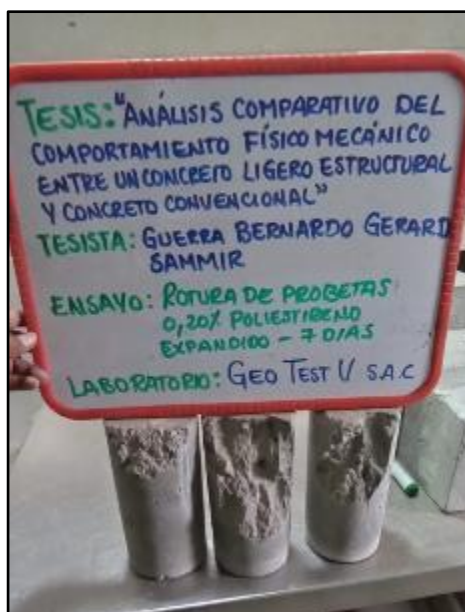 TESIS: "ANÁLISIS COMPARATIVO DEL
COMPORTAMIENTO FÍSICO MECÁNICO
ENTRE UN CONCRETO LIGERO ESTRUCTURAL
Y CONCRETO CONVENCIONAL"
TESISTA: GUERRA BERNARDO GERARD
SAMMIR
ENSAYO: ROTURA DE PROBETAS
0,20% POLIESTIRENO
EXPANDIDO - 7 DIAS
LABORATORIO: GEO TEST V S.A.C